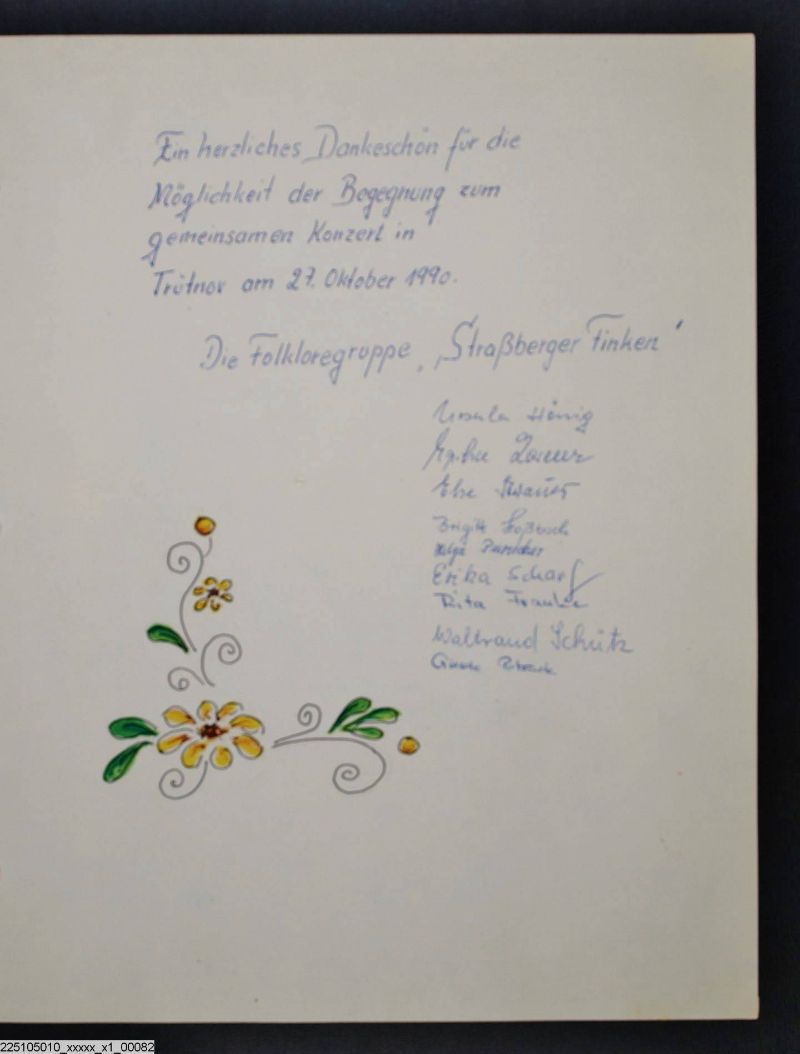 Ein herzliches Dankeschön für die
Möglichkeit der Begegnung zum
gemeinsamen Konzert in
Trutnov am 27. Oktober 1990.
Die Folkloregruppe „Straßberger Finken"
Ursula Hönig
Else
Brigitte
Erika Scharf
Rita Franke
Waltraud Schütz
225105010_xxxxx_x1_00082